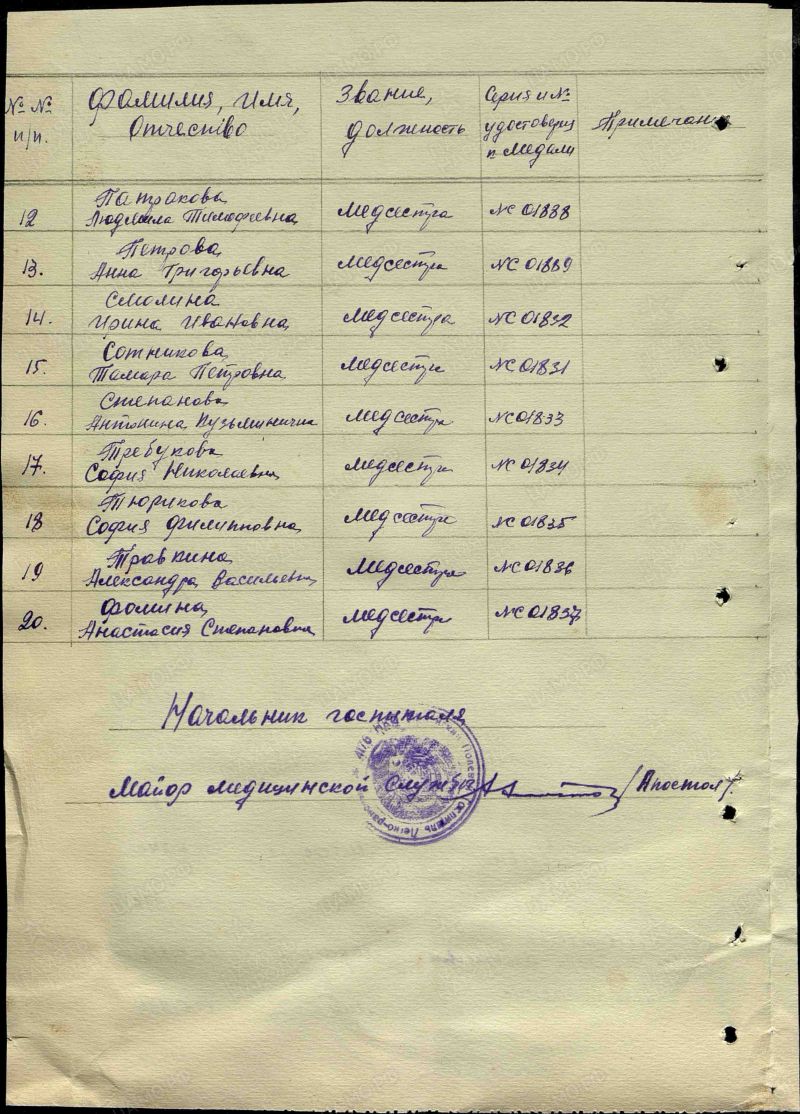 № № Фамилия, Имя, Звание, Серия и №
п/п. Отчество должность удостовер. Примечание
к медали
Патракова
12 Людмила Тимофеевна медсестра №С 01888
Петрова
13. Анна Григорьевна медсестра №С 01889
Смолина
14. Ирина Ивановна медсестра №С 01832
Сотникова
15. Тамара Петровна медсестра №С 01831
Степанова
16. Антонина Кузьминична медсестра №С 01833
Требукова
17. София Николаевна медсестра №С 01834
Тюрикова
18 София Филипповна медсестра №С 01835
Травкина
19 Александра Васильевна медсестра №С 01836
Фомина
20. Анастасия Степановна медсестра №С 01837
Начальник госпиталя
Майор медицинской службы /Апостол/.
Госпиталь Легко-ран